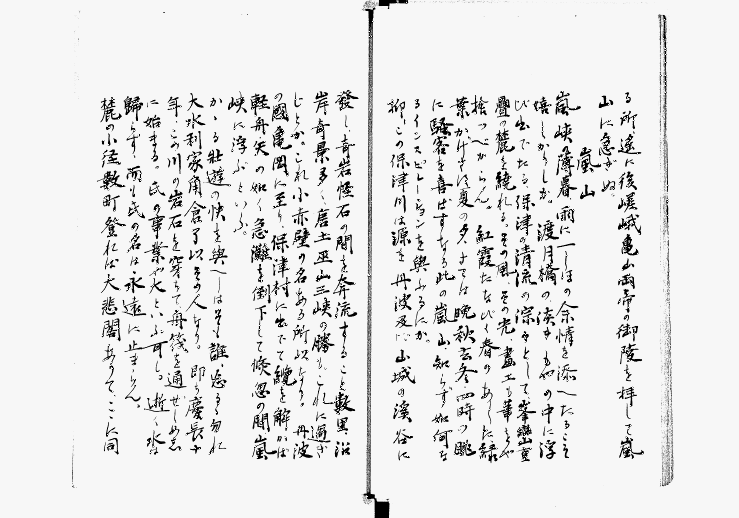 る所、遙に後嵯峨亀山両帝の御陵を拝して嵐
山に急がぬ。
嵐山
嵐峡の薄暮、雨に一しほの余情を添へたるこそ
嬉しかりしか。渡月橋の淡きもやの中に浮
び出でたる、保津の清流の淙々として、峯巒重
畳の麓を繞れる、その風、その光、画工も筆をや
捨つべからん。紅霞たなびく春のあした、緑
葉かげすゞし夏の夕、さては晩秋玄冬、四時の眺
に騒客を喜ばすなる此の嵐山、知らず如何な
るインスピレーションを与ふるにか。
抑この保津川は源を丹波及び山城の渓谷に
発し、奇岩怪石の間を奔流すること数里、沿
岸奇景多く、唐土巫山三峡の勝も、これに過ぎ
じとか。これ小赤壁の名ある所以なり。丹波
の国亀岡に至り、保津村に出でて纜を解かば
軽舟矢の如く、急灘を倒下して倏忽の間嵐
峡に浮ぶといふ。
かゝる壮遊の快を与へしはそも誰、忘るゝ勿れ
大水利家角倉了以その人なり。即ち慶長十
年、この川の岩石を穿ちて舟筏を通せしめし
に始まる。氏の事業や大といふ可し。逝く水は
帰らず、而も氏の名は永遠に止まらん。
麓の小径数町登れば大悲閣ありて、ここに同